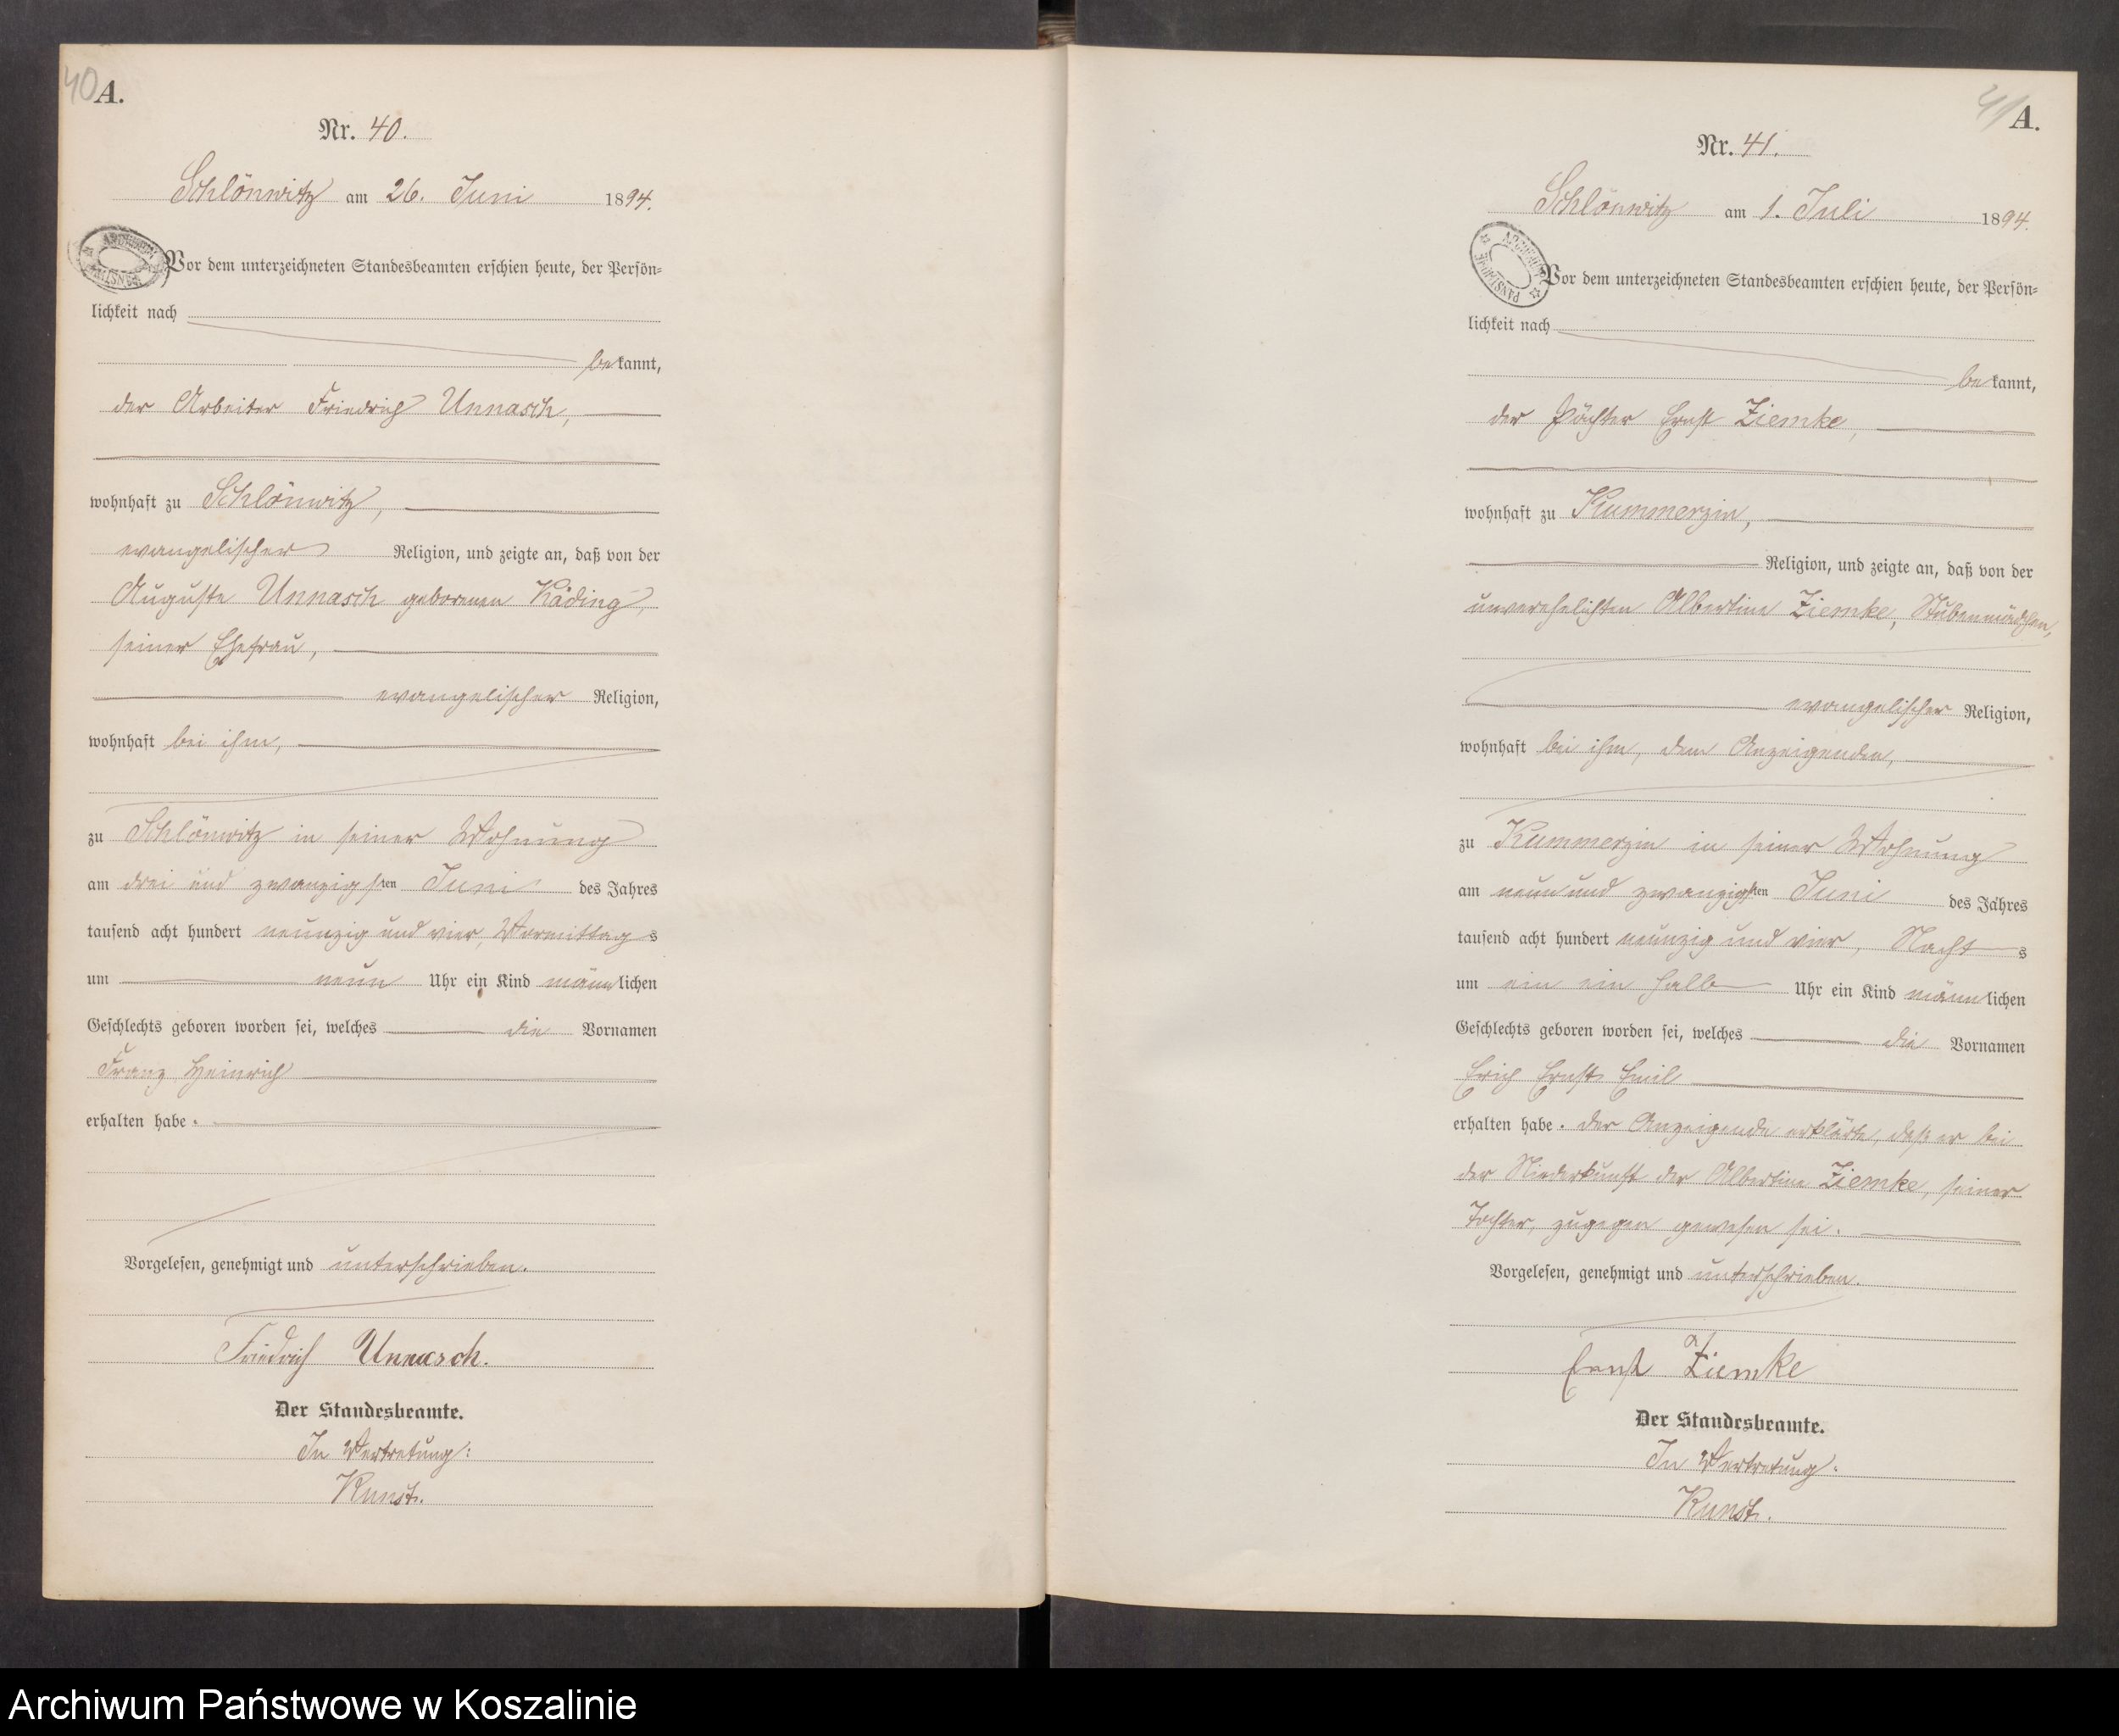 40
A.
Nr. 40.
Schlönwitz am 26. Juni 1894.
Vor dem unterzeichneten Standesbeamten erschien heute, der Persön=
lichkeit nach
bekannt,
der Arbeiter Friedrich Unnasch,
wohnhaft zu Schlönwitz,
evangelischer Religion, und zeigte an, daß von der
Auguste Unnasch geborenen Käding,
seiner Ehefrau,
evangelischer Religion,
wohnhaft bei ihm,
zu Schlönwitz in seiner Wohnung
am drei und zwanzigsten Juni des Jahres
tausend acht hundert neunzig und vier, Vormittags
um neun Uhr ein Kind männlichen
Geschlechts geboren worden sei, welches die Vornamen
Franz Heinrich
erhalten habe.
Vorgelesen, genehmigt und unterschrieben.
Friedrich Unnasch.
Der Standesbeamte.
In Vertretung:
Kunst.
41
A.
Nr. 41.
Schlönwitz am 1. Juli 1894.
Vor dem unterzeichneten Standesbeamten erschien heute, der Persön=
lichkeit nach
bekannt,
der Pächter Ernst Ziemke,
wohnhaft zu Kummerzin,
Religion, und zeigte an, daß von der
unverehelichten Albertine Ziemke, Stubenmädchen,
evangelischer Religion,
wohnhaft bei ihm, dem Anzeigenden,
zu Kummerzin in seiner Wohnung
am neun und zwanzigsten Juni des Jahres
tausend acht hundert neunzig und vier, Nachts
um ein ein halb Uhr ein Kind männlichen
Geschlechts geboren worden sei, welches die Vornamen
Erich Ernst Emil
erhalten habe. Der Anzeigende erklärte, daß er bei
der Niederkunft der Albertine Ziemke, seiner
Tochter, zugegen gewesen sei.
Vorgelesen, genehmigt und unterschrieben.
Ernst Ziemke
Der Standesbeamte.
In Vertretung:
Kunst.
Archiwum Państwowe w Koszalinie